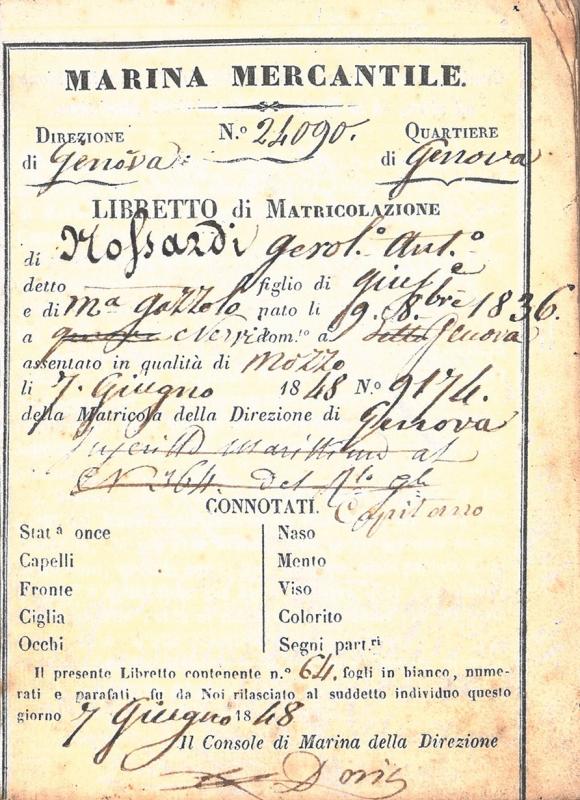 MARINA MERCANTILE.
DIREZIONE N.º 24090. QUARTIERE
di Genova: di Genova
LIBRETTO di MATRICOLAZIONE
di Rossardi Gerol.º Ant.º
detto figlio di Gius.e
e di M.a Gazzolo nato li 9. 8.bre 1836.
a Genova Nervi dom.to a Genova
assentato in qualità di Mozzo
li 7. Giugno 1848 N.º 9174.
della Matricola della Direzione di Genova
al
N 264. del
CONNOTATI. Capitano
Stat.ª once Naso
Capelli Mento
Fronte Viso
Ciglia Colorito
Occhi Segni part.ri
Il presente Libretto contenente n.º 64. fogli in bianco, nume-
rati e parafati, fu da Noi rilasciato al suddetto individuo questo
giorno 7 Giugno 1848
Il Console di Marina della Direzione